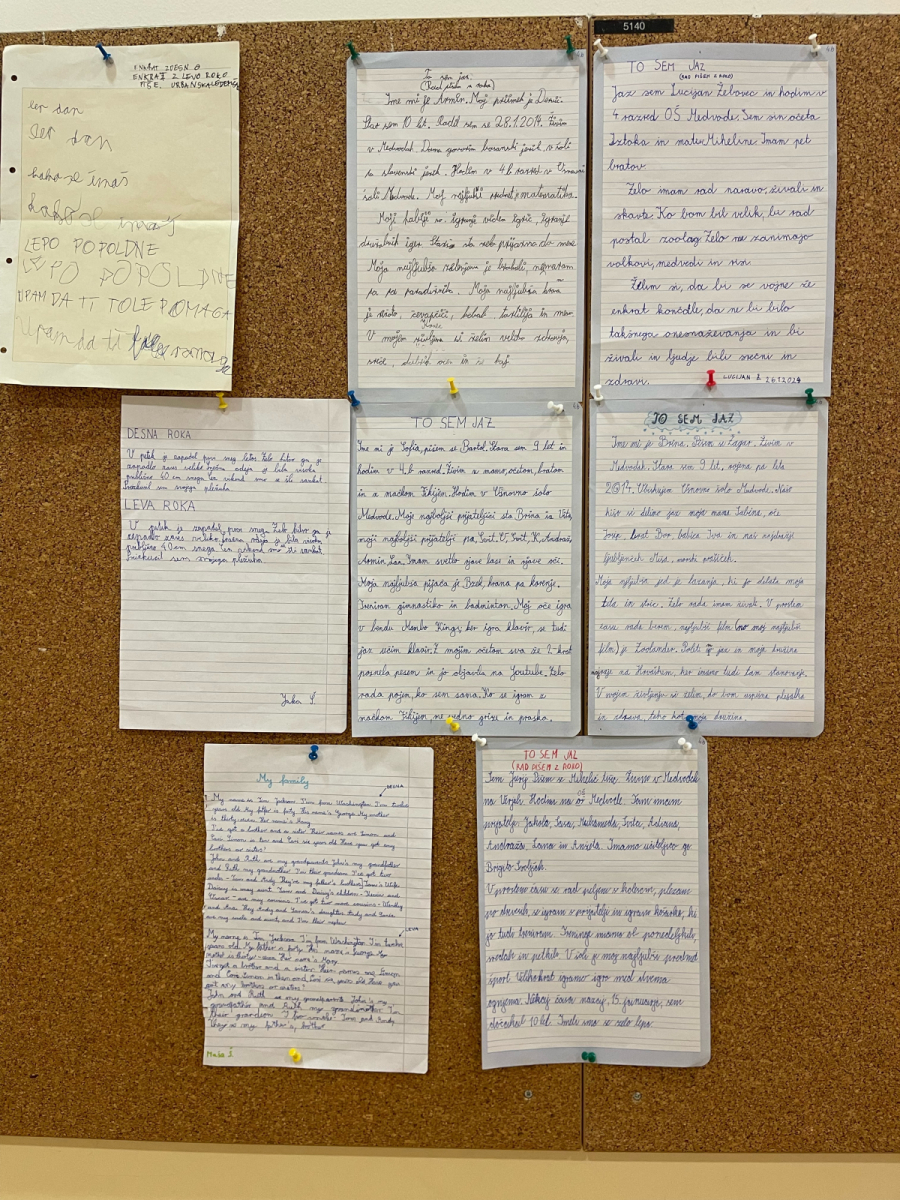 5140
ENKRAT Z DESNO
ENKRAT Z LEVO ROKO
PIŠE URBANSKA
ker dan
dan
kako se imaš
kako se imaš
LEPO POPOLDNE
LEPO POPOLDNE
UPAM DA TI TOLE POMAGA
upam da ti tole pomaga
To sem jaz
(Rad pišem z roko)
Ime mi je Armin. Moj priimek je Demić.
Star sem 10 let. Rodil sem se 28.1.2014. Živim
v Medvodah. Doma govorim bosanski jezik, v šoli
pa slovenski jezik. Hodim v 4.b razred v Osnovni
šoli Medvode. Moj najljubši predmet je matematika.
Moji hobiji so: igranje video igric, igranje
družabnih iger. Starši so zelo prijazni do mene.
Moja najljubša zelenjava je brokoli, ne maram
pa pa paradižnika. Moja najljubša hrana
je pizza, čevapčiči, kebab, tortilja in
V mojem življenju si želim veliko zdravja,
sreče,
TO SEM JAZ
(RAD PIŠEM Z ROKO)
Jaz sem Lucijan Žebovec in hodim v
4 razred OŠ Medvode. Sem sin očeta
Iztoka in mater Miheline. Imam pet
bratov.
Zelo imam rad naravo, živali in
skavte. Ko bom bil velik, bi rad
postal zoolog. Zelo me zanimajo
volkovi, medvedi in risi.
Želim si, da bi se vojne že
enkrat končale, da ne bi bilo
takšnega onesnaževanja in bi
živali in ljudje bili srečni in
zdravi.
LUCIJAN Ž. 26.1.2024
DESNA ROKA
V petek je zapadel prvi sneg letos. Zelo hitro ga je
zapadlo zato veliko. odeja je bila visoka
približno 40 cm snega. smo se šli sankat.
Izkusil sem svojega plezalca.
LEVA ROKA
V petek je zapadel prvi sneg. Zelo hitro ga je
zapadlo zato veliko. odeja je bila visoka
približno 40 cm snega smo šli sankat.
sem svojega plezalca.
Jaka Š.
TO SEM JAZ
Ime mi je Sofia, pišem se Bartol. Stara sem 9 let in
hodim v 4.b razred. Živim z mamo, očetom, bratom
in z mačkom Fikijem. Hodim v Osnovno šolo
Medvode. Moje najboljši prijateljici sta Brina in Vita,
moji najboljši prijatelji pa, Svit O, Svit K, Andraž,
Armin, Lan. Imam svetlo rjave lase in rjave oči.
Moja najljubša pijača je Bzek, hrana pa korenje.
Treniram gimnastiko in badminton. Moj oče igra
v bendu Mambo Kings, ker igra klavir, se tudi
jaz učim klavir. Z mojim očetom sva že 2-krat
posnela pesem in jo objavila na Youtube. Zelo
rada pojem, ko sem sama. Ko se igram z
mačkom Fikijem me vedno grize in praska.
TO SEM JAZ
Ime mi je Brina. Pišem se Žagar. Živim v
Medvodah. Stara sem 9 let, rojena pa leta
2014. Obiskujem Osnovno šolo Medvode. Našo
hišo si delimo jaz moja mama Sabina, oče
Josip, brat Bor, babica Iva in naš najdražji
ljubljenček Miša, morski prašiček.
Moja najljubša jed je lazanja, ki jo delata moja
teta in stric. Zelo rada imam živali. V prostem
času rada berem, najljubši film (no moj najljubši
film) je Zoolander. Poleti gr jaz in moja družina
najraje na Hrvaškem, ker imamo tudi tam stanovanje.
V mojem življenju si želim, da bom uspešna plesalka
in zdrava, tako kot moja družina.
My family
DESNA
My name is Jim Jackson. I'm from Washington. I'm twelve
years old. My father is forty. His name's George. My mother
is thirty-seven. Her name's Mary.
I've got a brother and a sister. Their names are Simon and
Carol. Simon is ten and Carol is six years old. Have you got any
brothers or sisters?
John and Ruth are my grandparents. John's my grandfather
and Ruth my grandmother. I'm their grandson. I've got two
uncles - Tom and Andy. They're my father's brothers. Tom's wife
Daisy is my aunt. Tom and Daisy's children - Kevin and
- are my cousins. I've got two more cousins - Wendy
and
are my uncle and aunt and I'm their nephew.
LEVA
My name is Jim Jackson. I'm from Washington. I'm twelve
years old. My father is forty. His name's George. My
mother is thirty-seven. Her name's Mary.
I've got a brother and a sister. Their names are Simon
and Carol. Simon is ten and Carol is six years old. Have you
got any brothers or sisters?
John and Ruth are my grandparents. John's my
grandfather and Ruth my grandmother. I'm
their grandson. I've two uncles. Tom and Andy.
They're my father's brother
Maša Š.
TO SEM JAZ
(RAD PIŠEM Z ROKO)
Sem Jurij. Pišem se Mihelič Lušo. Živim v Medvodah
na Vrjah. Hodim na OŠ Medvode. Tam imam
prijatelje Jakoba, Sava, Muhameda, Svita, Adriana,
Andraža, Lana in Anžeta. Imamo učiteljico ga.
Brigito
V prostem času se rad peljem s kolesom, plezam
po drevesih, se igram s prijatelji in igram košarko, ki
jo tudi treniram. Treninge imamo ob ponedeljkih,
sredah in petkih. V šoli je moj najljubši predmet
šport. Velikokrat igramo igro med dvema
ognjema. Nekaj časa nazaj, 15. januarja, sem
dočakal 10 let. Imeli smo se zelo lepo.